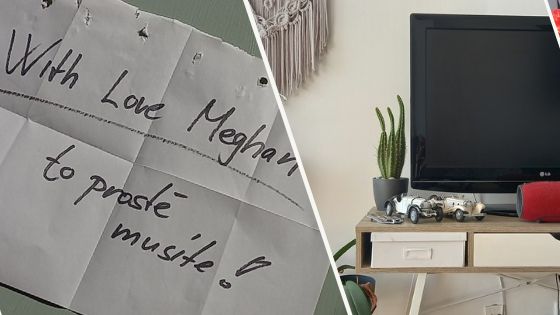 With Love Meghan
to prostě
musíte!
LG